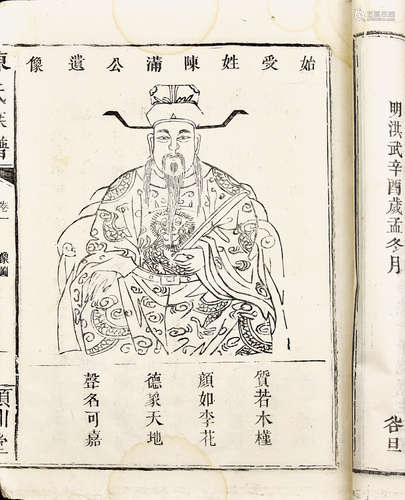 明洪武辛酉歲孟冬月
旦
始受姓陳滿公遺像
質若木槿
顏如李花
德象天地
聲名可嘉
陳氏族譜
卷一
潁川堂